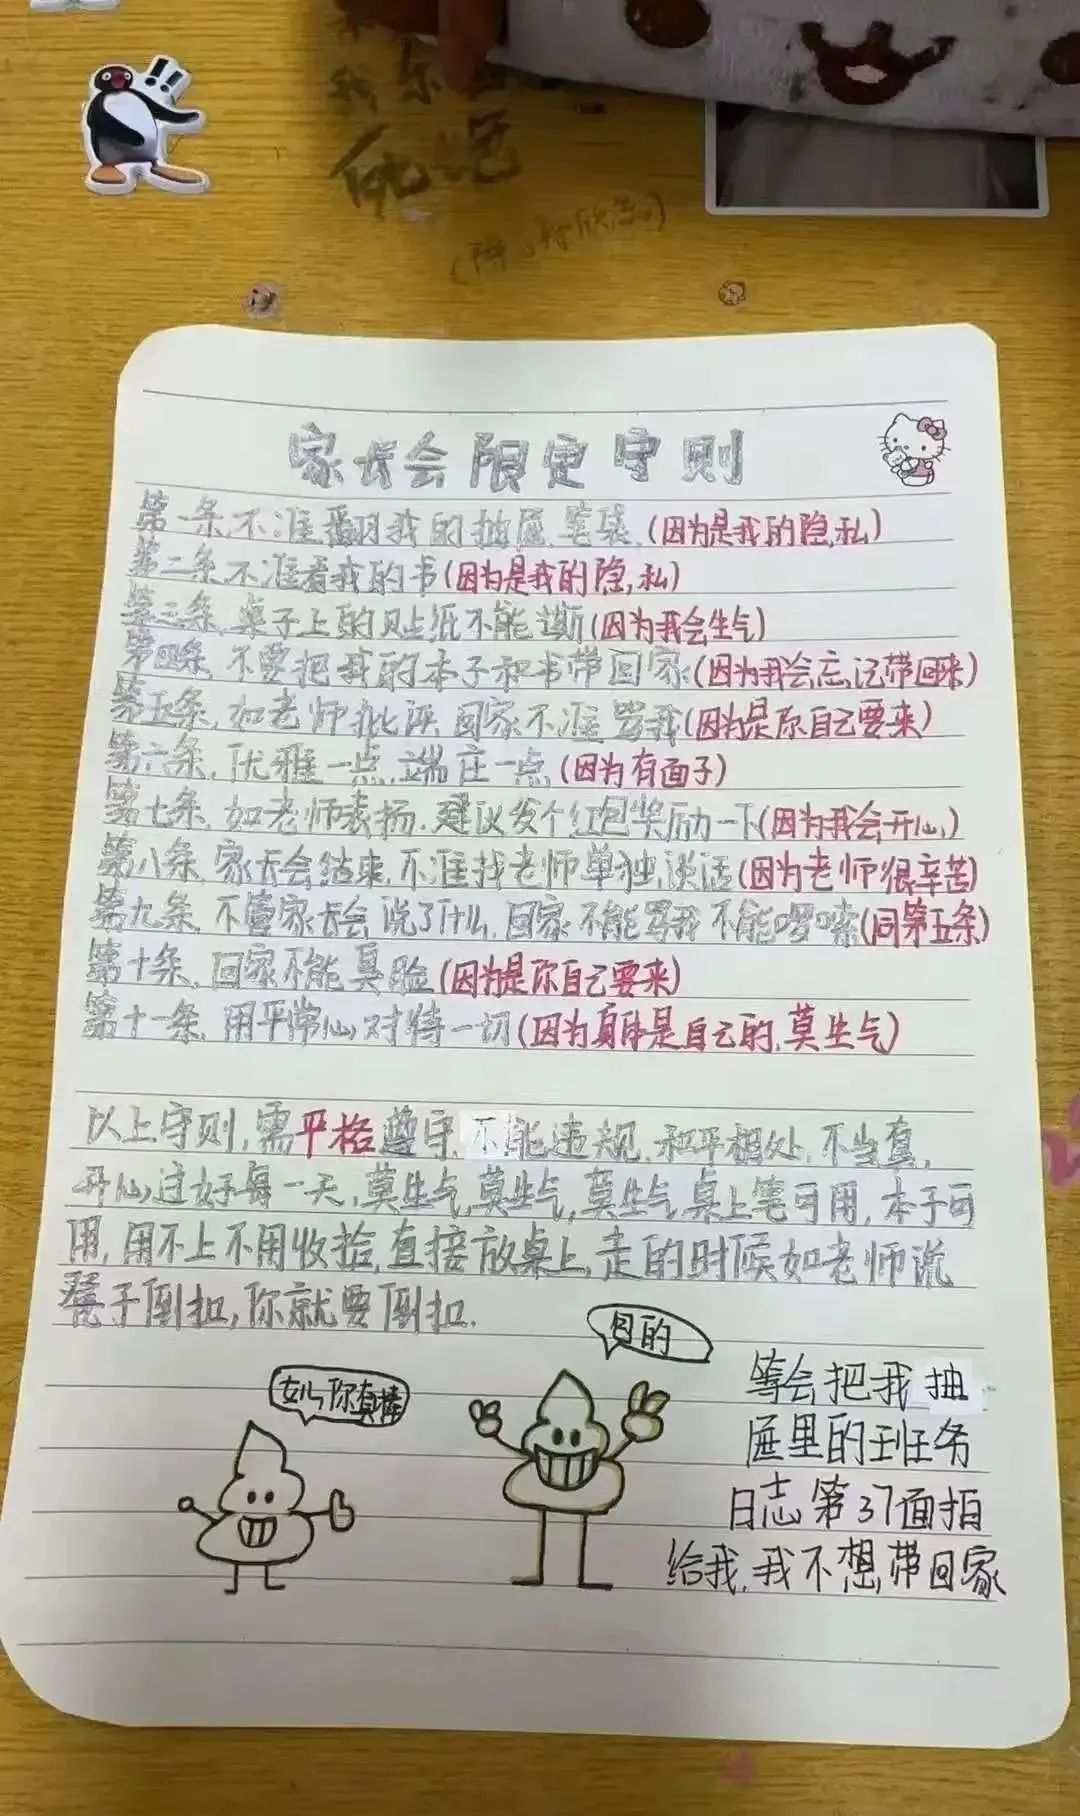 家长会限定守则
第一条,不准翻我的抽屉,笔袋,(因为是我的隐私)
第二条,不准看我的书(因为是我的隐私)
第三条,桌子上的贴纸不能撕(因为我会生气)
第四条,不要把我的本子和书带回家(因为我会忘记带回来)
第五条,如老师批评,回家不准骂我(因为是你自己要来)
第六条,优雅一点,端庄一点(因为有面子)
第七条,如老师表扬,建议发个红包奖励一下(因为我会开心)
第八条,家长会结束,不准找老师单独谈话(因为老师很辛苦)
第九条,不管家长会说了什么,回家不能骂我不能啰嗦(同第五条)
第十条,回家不能臭脸(因为是你自己要来)
第十一条,用平常心对待一切(因为身体是自己的,莫生气)
以上守则,需平格遵守,不能违规,和平相处,不当真,
开心过好每一天,莫生气,莫生气,莫生气,桌上笔可用,本子可
用,用不上不用收拾,直接放桌上,走的时候如老师说
凳子倒扣,你就要倒扣.
目的
女儿你真棒
等会把我抽
屉里的班务
日志第37面拍
给我,我不想带回家